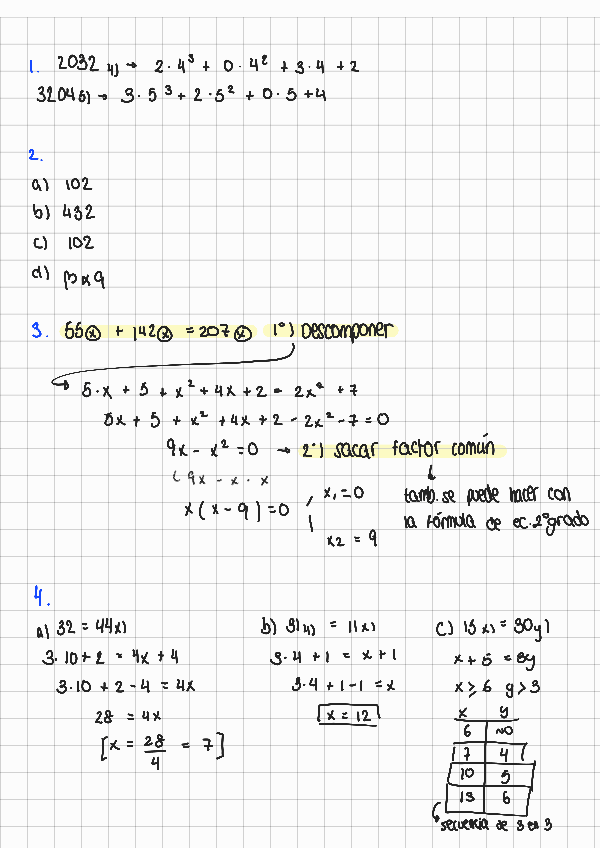 1. 2032 4) → 2·4³ + 0·4² + 3·4 + 2
3204 5) → 3·5³ + 2·5² + 0·5 + 4
2.
a) 102
b) 432
c) 102
d)
3. 55ⓧ + 142ⓧ = 207ⓧ 1º) Descomponer
5·x + 5 + x² + 4x + 2 = 2x² + 7
5x + 5 + x² + 4x + 2 - 2x² - 7 = 0
9x - x² = 0 → 2º) sacar factor común
(9x - x · x
x(x - 9) = 0 , x₁ = 0
x2 = 9
tamb. se puede hacer con
la fórmula de ec. 2º grado
4.
a) 32 = 44x)
3·10 + 2 = 4x + 4
3·10 + 2 - 4 = 4x
28 = 4x
[x = 28/4 = 7]
b) 31 4) = 11x)
3·4 + 1 = x + 1
3·4 + 1 - 1 = x
x = 12
c) 15 x) = 30y)
x + 5 = 3y
x ≥ 6 y > 3
x y
6 NO
7 4
10 5
13 6
secuencia de 3 en 3